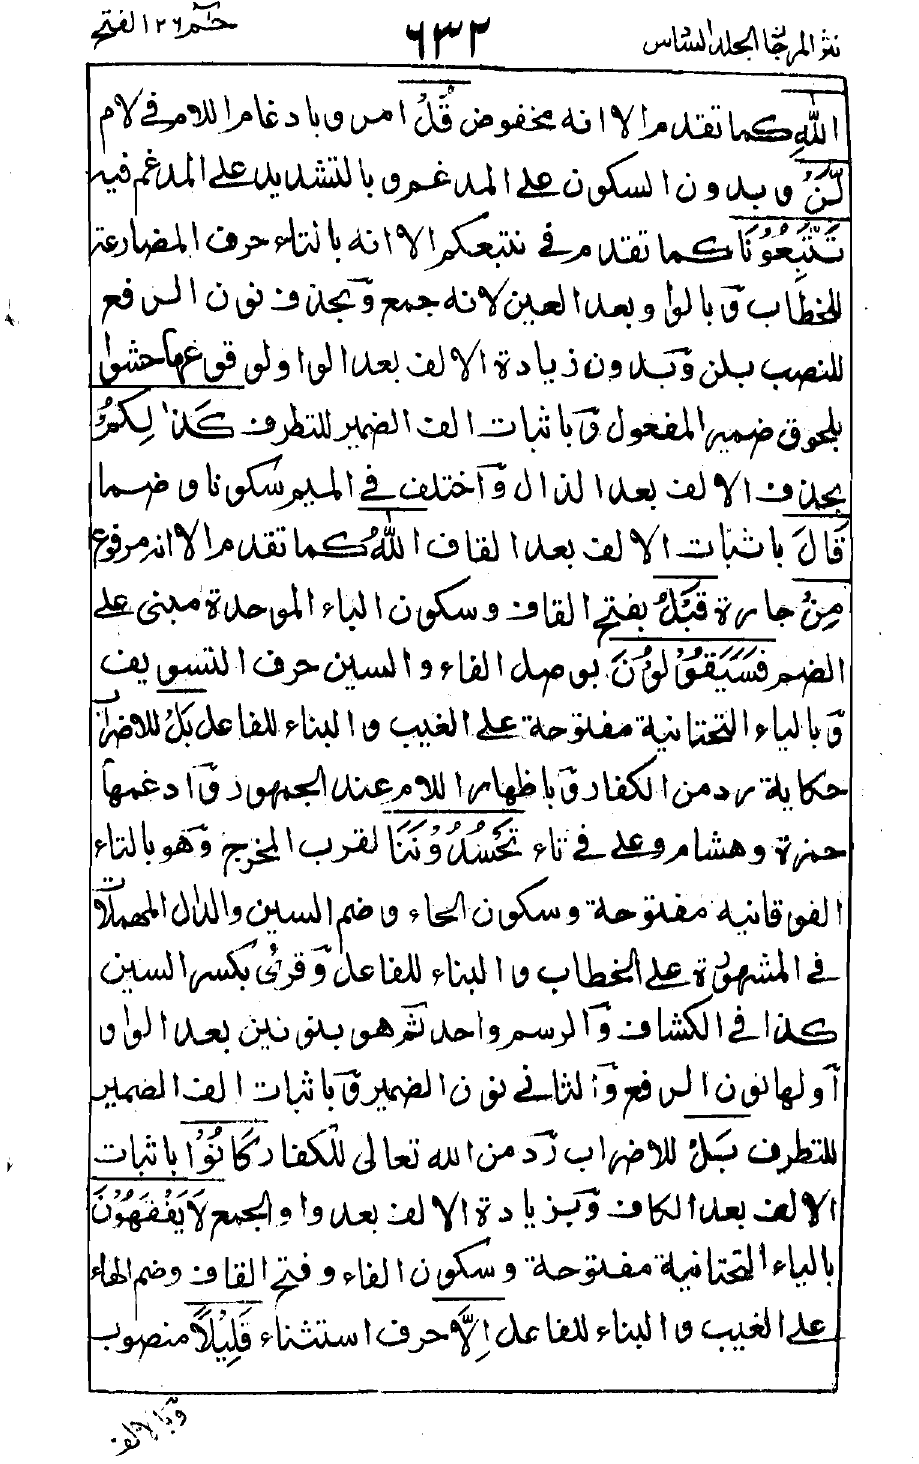 نثر المرجان الجلد السادس ٦٣٢ حٰم ٢٦ الفتح
اللّٰهِ كما تقدم الا انه مخفوض قُلْ امر وبادغام اللام في لام
لَّنْ وبدون السكون على المدغم وبالتشديد على المدغم فيه
تَتَّبِعُوْنَا كما تقدم في نتبعكم الا انه بالتاء حرف المضارعة
للخطاب وبالواو بعد العين لانه جمع وبحذف نون الرفع
للنصب بلن وبدون زيادة الالف بعد الواو لوقوعها حشوا
بلحوق ضمير المفعول وباثبات الف الضمير للتطرف كَذٰلِكُمْ
بحذف الالف بعد الذال واختلف في الميم سكونا وضما
قَالَ باثبات الالف بعد القاف اللّٰهُ كما تقدم الا انه مرفوع
مِنْ جارة قَبْلُ بفتح القاف وسكون الباء الموحدة مبنى على
الضم فَسَيَقُوْلُوْنَ بوصل الفاء والسين حرف التسويف
وبالياء التحتانية مفتوحة على الغيب والبناء للفاعل بَلْ للاضراب
حكاية رد من الكفار وباظهار اللام عند الجمهور وادغمها
حمزة وهشام وعلى في تاء تَحْسُدُوْنَنَا لقرب المخرج وهو بالتاء
الفوقانية مفتوحة وسكون الحاء وضم السين والدال المهملات
في المشهورة على الخطاب والبناء للفاعل وقرئ بكسر السين
كذا في الكشاف والرسم واحد ثم هو بنونين بعد الواو
اولها نون الرفع والثاني نون الضمير وباثبات الف الضمير
للتطرف بَلْ للاضراب رد من الله تعالى للكفار كَانُوْا باثبات
الالف بعد الكاف وبزيادة الالف بعد واو الجمع لَا يَفْقَهُوْنَ
بالياء التحتانية مفتوحة وسكون الفاء وفتح القاف وضم الهاء
على الغيب والبناء للفاعل اِلَّا حرف استثناء قَلِيْلًا منصوب
وبالالف